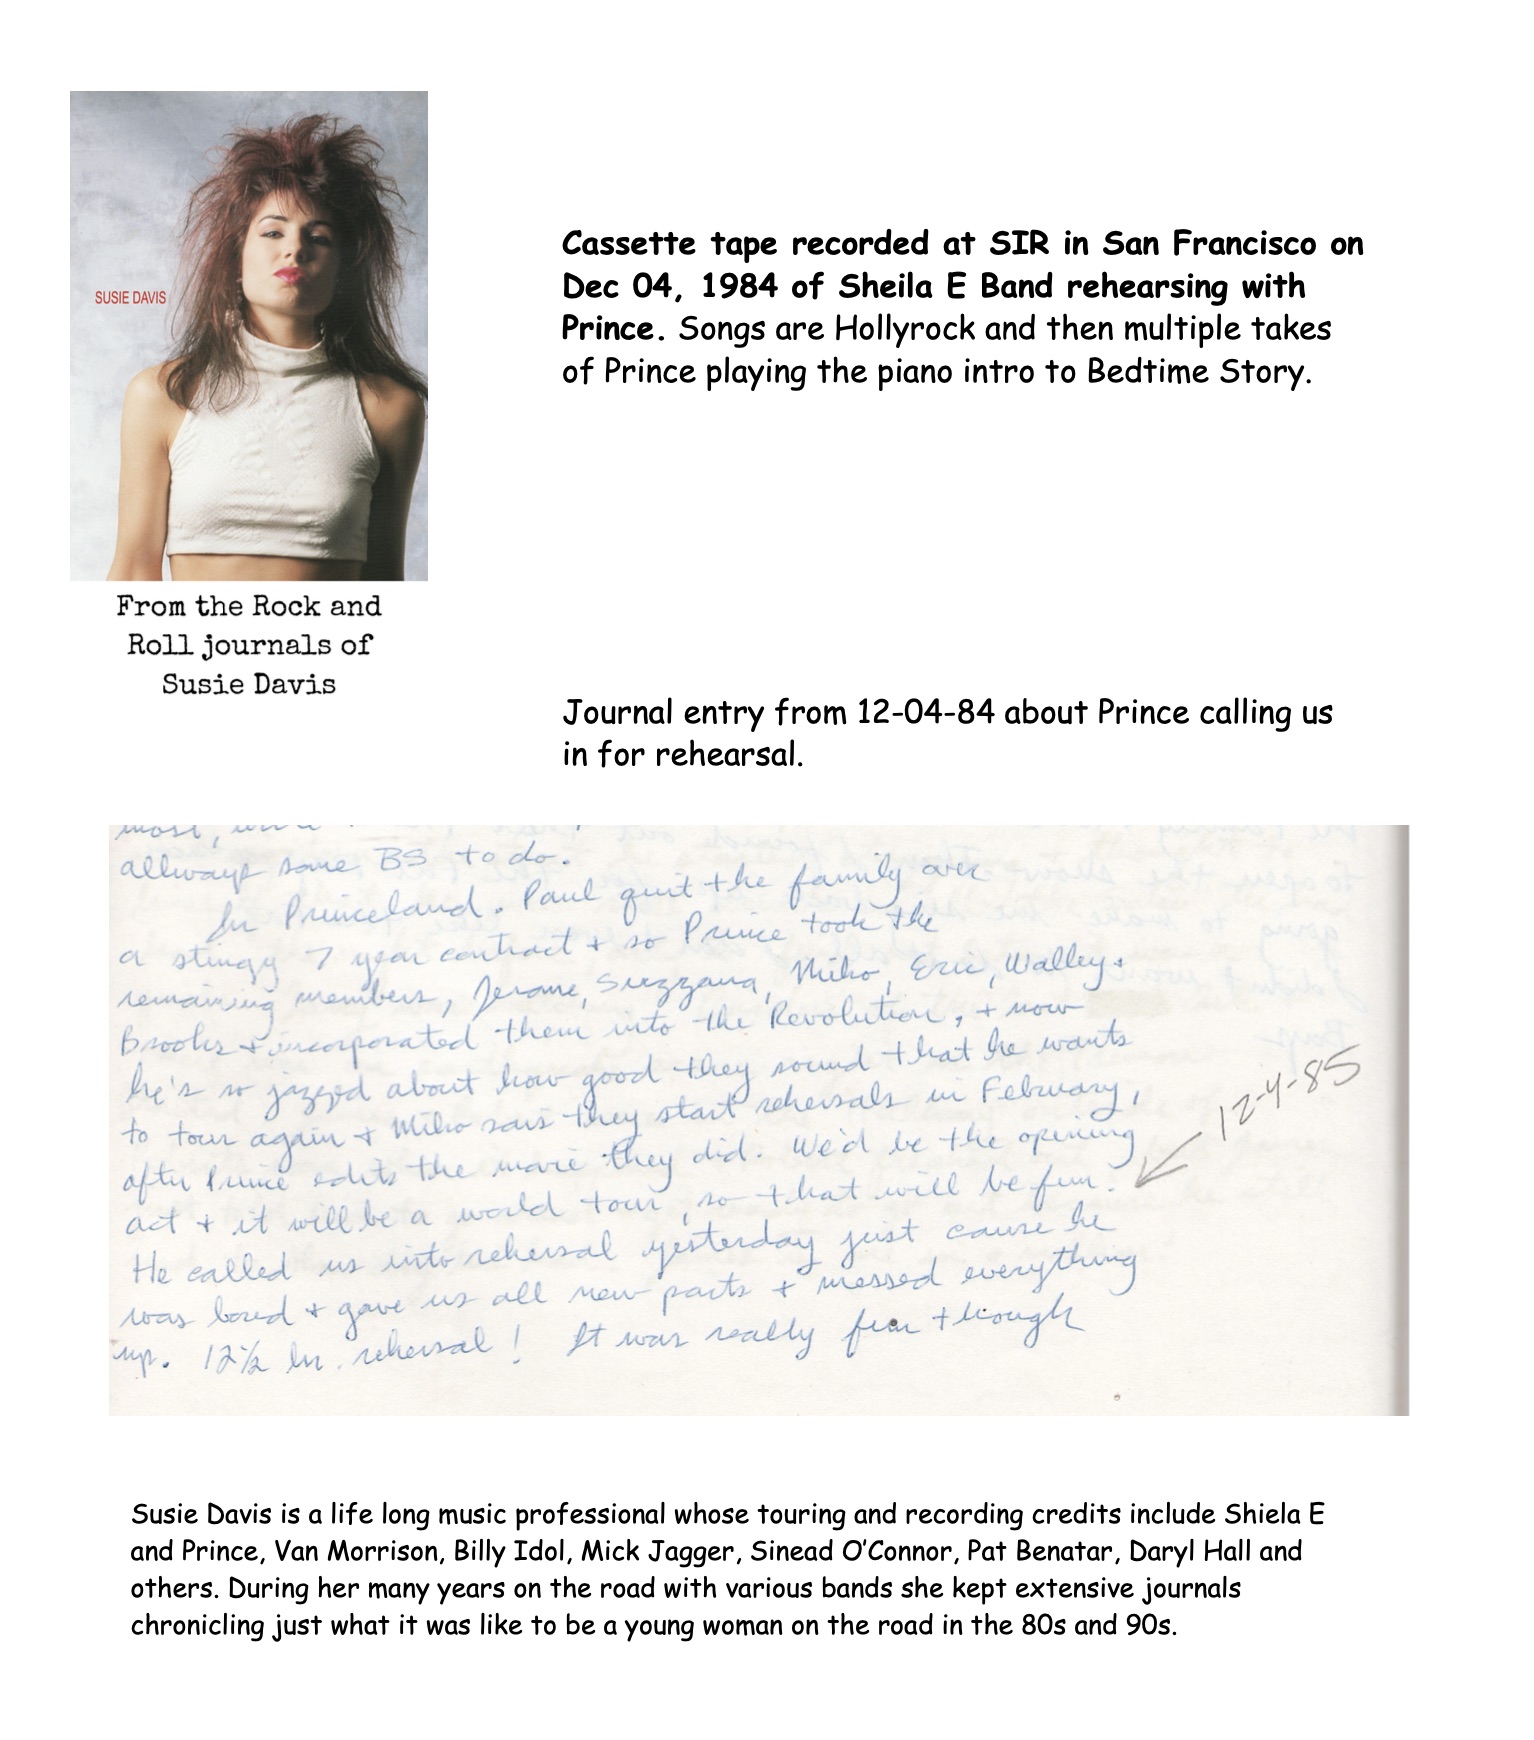 SUSIE DAVIS
From the Rock and
Roll journals of
Susie Davis
Cassette tape recorded at SIR in San Francisco on
Dec 04, 1984 of Sheila E Band rehearsing with
Prince. Songs are Hollyrock and then multiple takes
of Prince playing the piano intro to Bedtime Story.
Journal entry from 12-04-84 about Prince calling us
in for rehearsal.
allways some BS to do.
In Princeland. Paul quit the family over
a stingy 7 year contract + so Prince took the
remaining members, Jerome, Suzzana, Miko, Eric, Walley +
Brooks + incorporated them into the Revolution, + now
he's so jazzed about how good they sound that he wants
to tour again + Miko sais they start rehersals in February,
after Prince edits the movie they did. We'd be the opening
act + it will be a world tour, so that will be fun.
12-4-85
He called us into rehersal yesterday just cause he
was bored + gave us all new parts + messed everything
up. 12½ hr. rehersal! It was really fun though
Susie Davis is a life long music professional whose touring and recording credits include Shiela E
and Prince, Van Morrison, Billy Idol, Mick Jagger, Sinead O'Connor, Pat Benatar, Daryl Hall and
others. During her many years on the road with various bands she kept extensive journals
chronicling just what it was like to be a young woman on the road in the 80s and 90s.